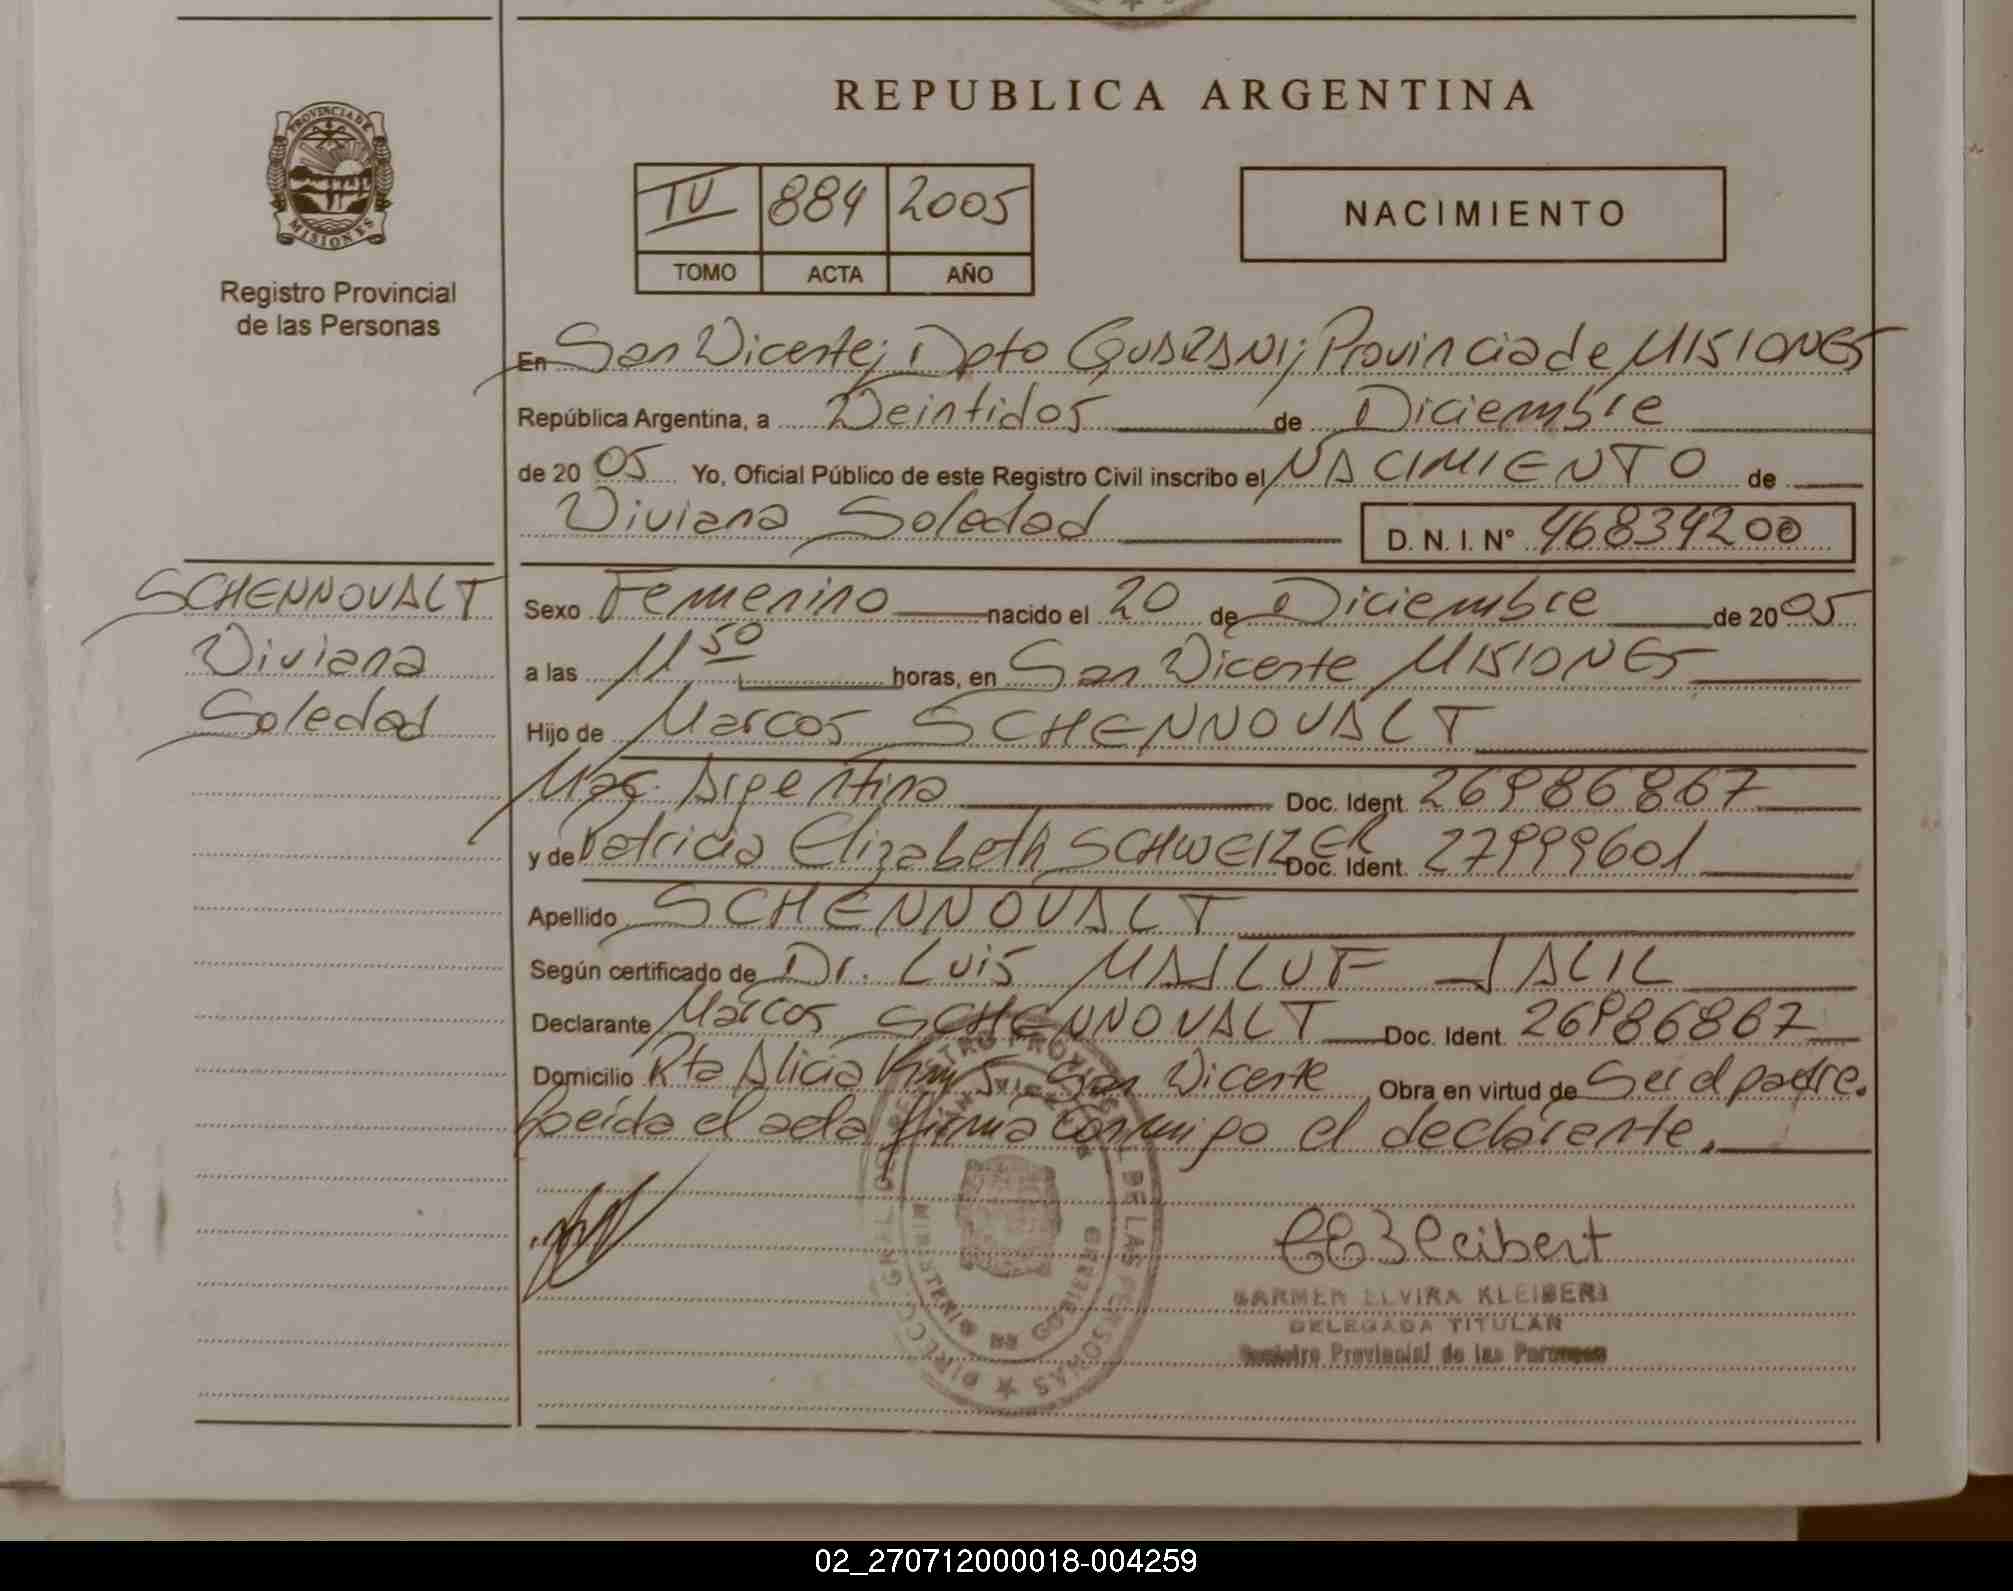 REPUBLICA ARGENTINA
PROVINCIA DE
MISIONES
Registro Provincial
de las Personas
IV 884 2005
TOMO ACTA AÑO
NACIMIENTO
En San Vicente; Dpto GUARANI; Provincia de MISIONES
República Argentina, a Veintidos de Diciembre
de 20 05 Yo, Oficial Público de este Registro Civil inscribo el NACIMIENTO de
Viviana Soledad D. N. I. N° 46834200
SCHENNOVALT
Viviana
Soledad
Sexo Femenino nacido el 20 de Diciembre de 20 05
a las 11 50 horas, en San Vicente MISIONES
Hijo de Marcos SCHENNOVALT
Nac. Argentina Doc. Ident. 26986867
y de Patricia Elizabeth SCHWEIZER Doc. Ident. 27999601
Apellido SCHENNOVALT
Según certificado de Dr. Luis MAJLUF JALIL
Declarante Marcos SCHENNOVALT Doc. Ident. 26986867
Domicilio Rta Alicia San Vicente Obra en virtud de Ser el padre.
Leída el acta firma conmigo el declarante.
MINISTERIO DE GOBIERNO
DE LAS PERSONAS
CARMEN ELVIRA KLEIBERT
DELEGADA TITULAR
Registro Provincial de las Personas
02_270712000018-004259